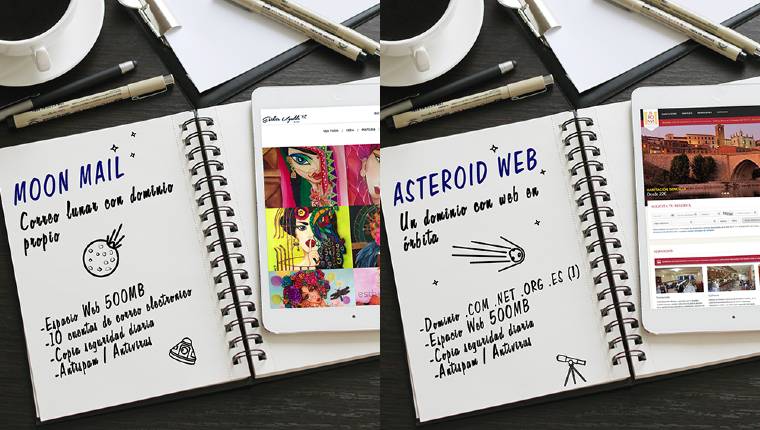 MOON MAIL
Correo lunar con dominio
propio
-Espacio Web 500MB
-10 cuentas de correo electronico
-Copia seguridad diaria
-Antispam / Antivirus
ASTEROID WEB
Un dominio con web en
órbita
-Dominio .COM .NET .ORG .ES (1)
-Espacio Web 500MB
-Copia seguridad diaria
-Antispam / Antivirus
HABITACIÓN SENCILLA
Desde 22€